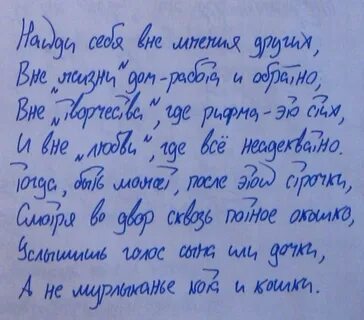 Найди себя вне мнения других,
Вне "жизни" дом-работа и обратно,
Вне "творчества", где рифма - это стих,
И вне "любви", где всё неадекватно.
Тогда, быть может, после этой строчки,
Смотря во двор сквозь потное окошко,
Услышишь голос сына или дочки,
А не мурлыканье кота и кошки.